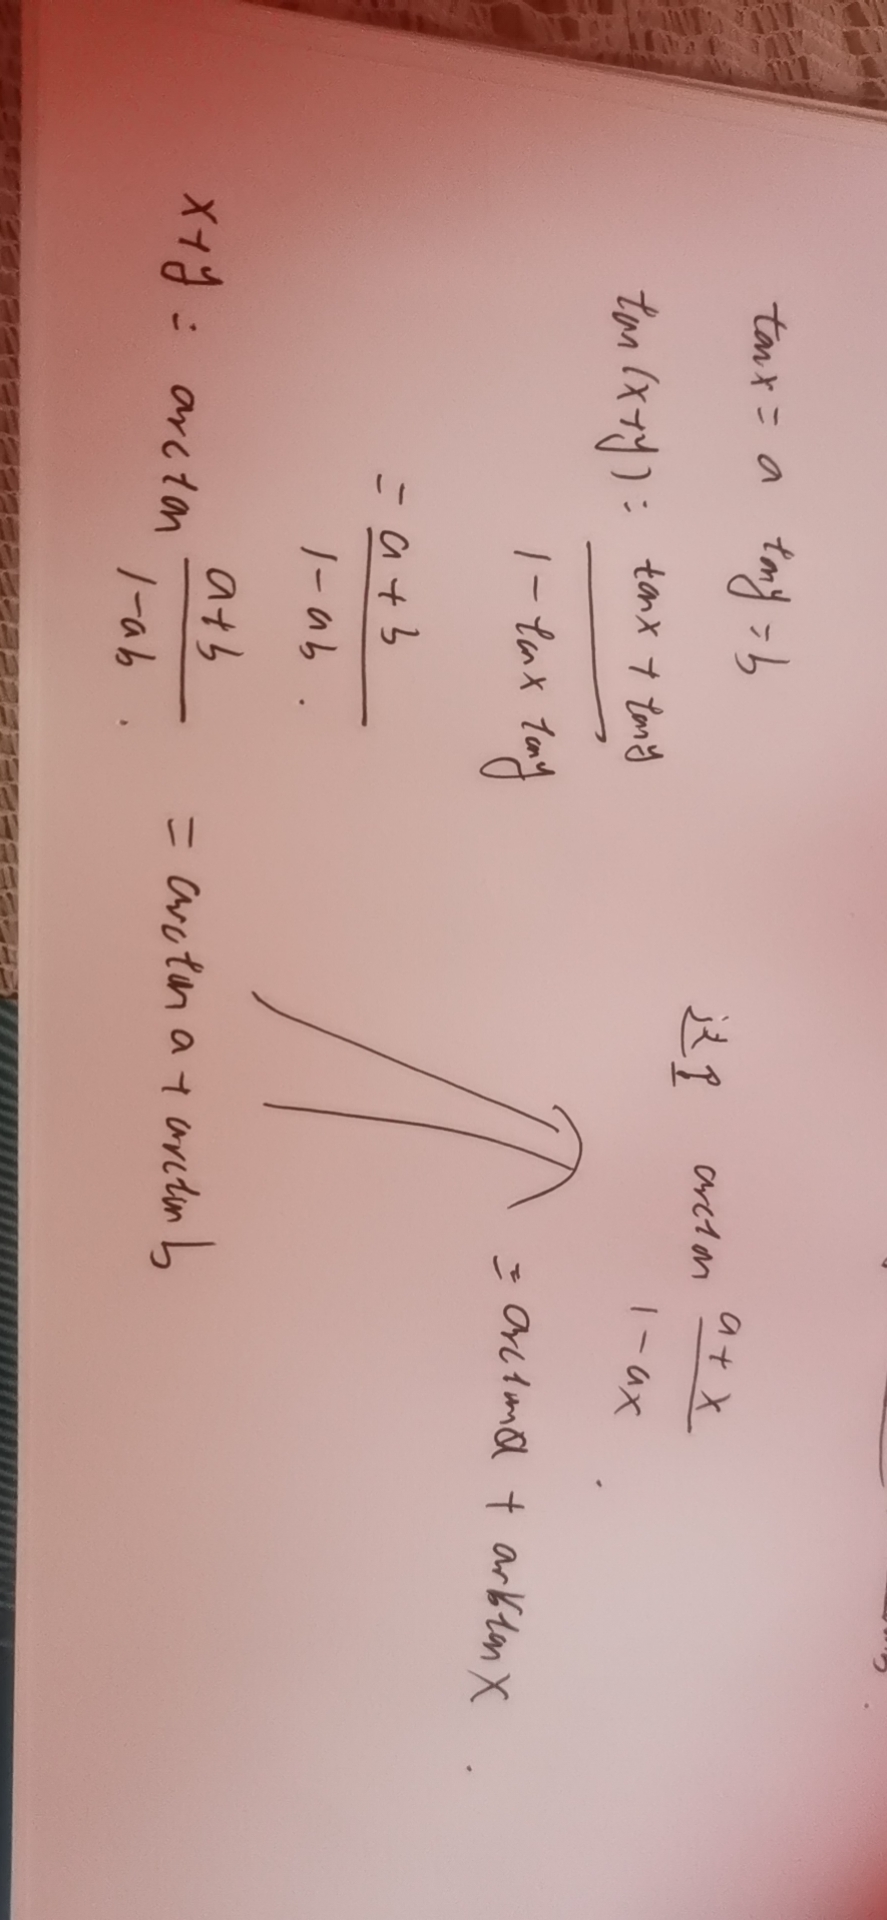 tanx = a tany = b
tan(x+y) = tanx + tany
1 - tanx tany
= a + b
1 - ab.
x+y = arctan a+b
1-ab. = arctan a + arctan b
arctan a+x
1-ax.
= arctana + arctan x.